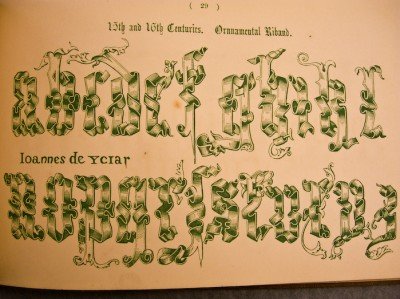 ( 29 )
15th and 16th Centuries. Ornamental Riband.
abcdefghi
Ioannes de Yciar
nopqrstu